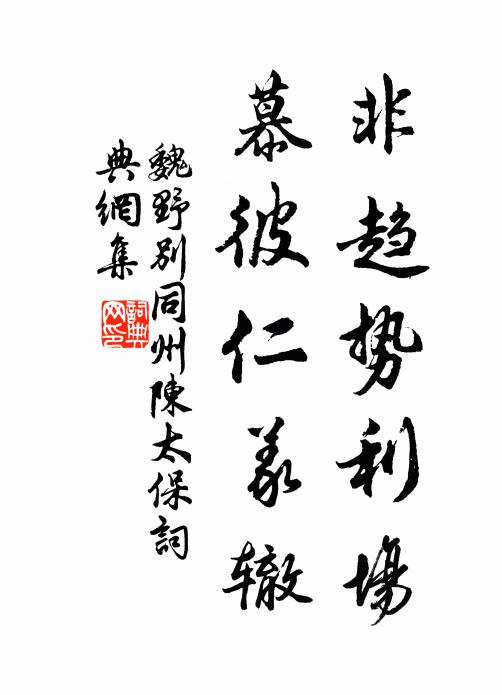 非趋势利場
慕彼仁义辙
魏野別同州陳太保詞
典網集
詞典网印